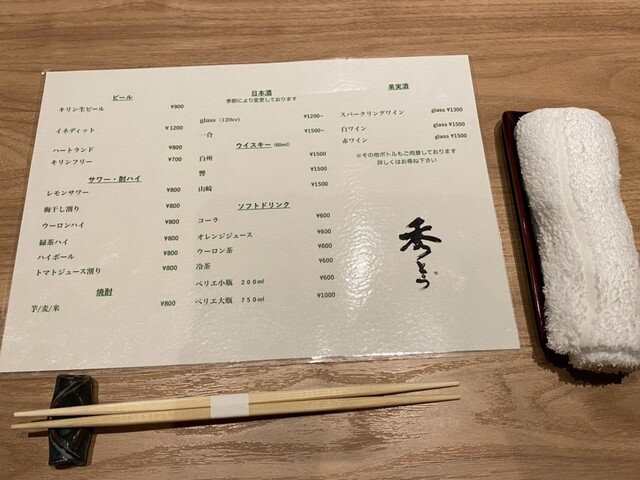 ビール
キリン生ビール ¥900
イネディット ¥1200
ハートランド ¥800
キリンフリー ¥700
サワー・酎ハイ
レモンサワー ¥800
梅干し割り ¥800
ウーロンハイ ¥800
緑茶ハイ ¥800
ハイボール ¥800
トマトジュース割り ¥800
焼酎
芋/麦/米 ¥800
日本酒
季節により変更しております
glass（120cc） ¥1200~
一合 ¥1500~
ウイスキー（60ml）
白州 ¥1500
響 ¥1500
山崎 ¥1500
ソフトドリンク
コーラ ¥600
オレンジジュース ¥600
ウーロン茶 ¥600
冷茶 ¥600
ペリエ小瓶 200ml ¥600
ペリエ大瓶 750ml ¥1000
果実酒
スパークリングワイン glass ¥1300
白ワイン glass ¥1500
赤ワイン glass ¥1500
※その他ボトルもご用意しております
詳しくはお尋ね下さい
秀とう